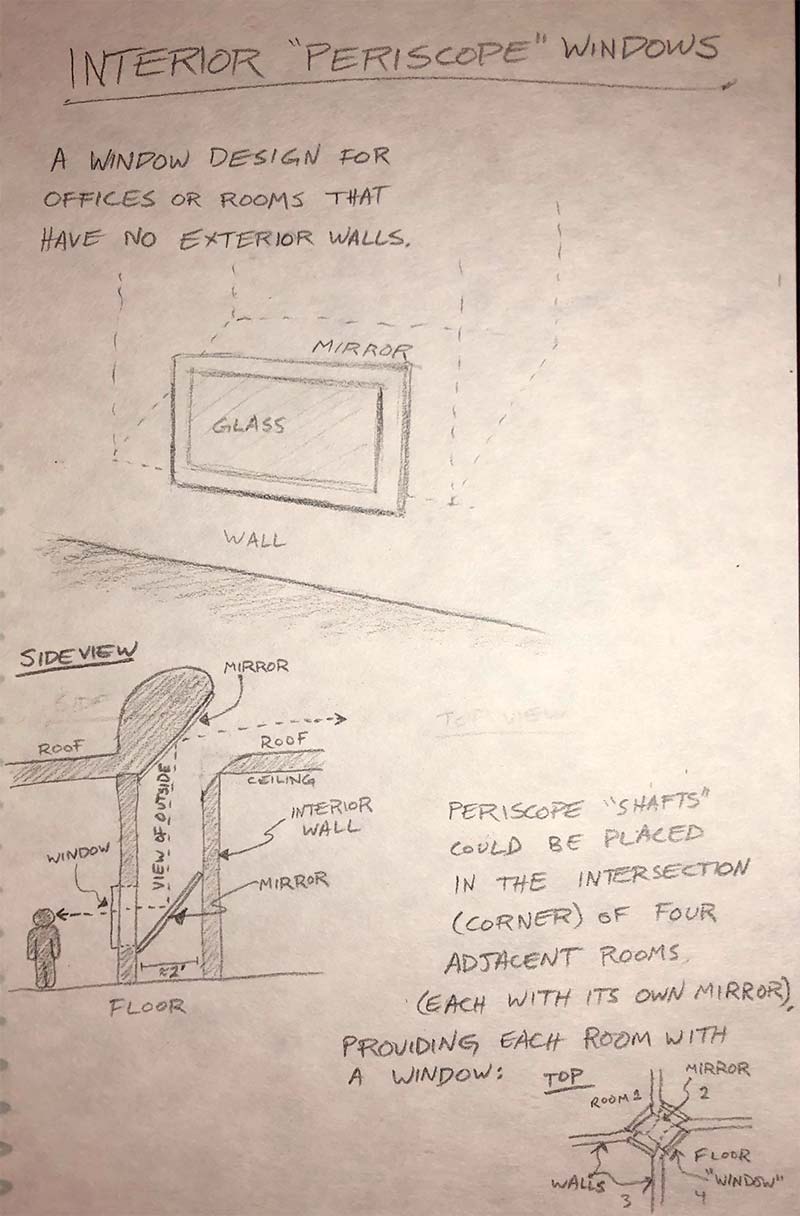 INTERIOR "PERISCOPE" WINDOWS
A WINDOW DESIGN FOR
OFFICES OR ROOMS THAT
HAVE NO EXTERIOR WALLS.
MIRROR
GLASS
WALL
SIDEVIEW
SIDE
MIRROR
TOP VIEW
ROOF
ROOF
CEILING
VIEW OF OUTSIDE
INTERIOR
WALL
WINDOW
MIRROR
≈2'
FLOOR
PERISCOPE "SHAFTS"
COULD BE PLACED
IN THE INTERSECTION
(CORNER) OF FOUR
ADJACENT ROOMS
(EACH WITH ITS OWN MIRROR),
PROVIDING EACH ROOM WITH
A WINDOW:
TOP
MIRROR
ROOM 1
2
FLOOR
"WINDOW"
WALLS
3
4